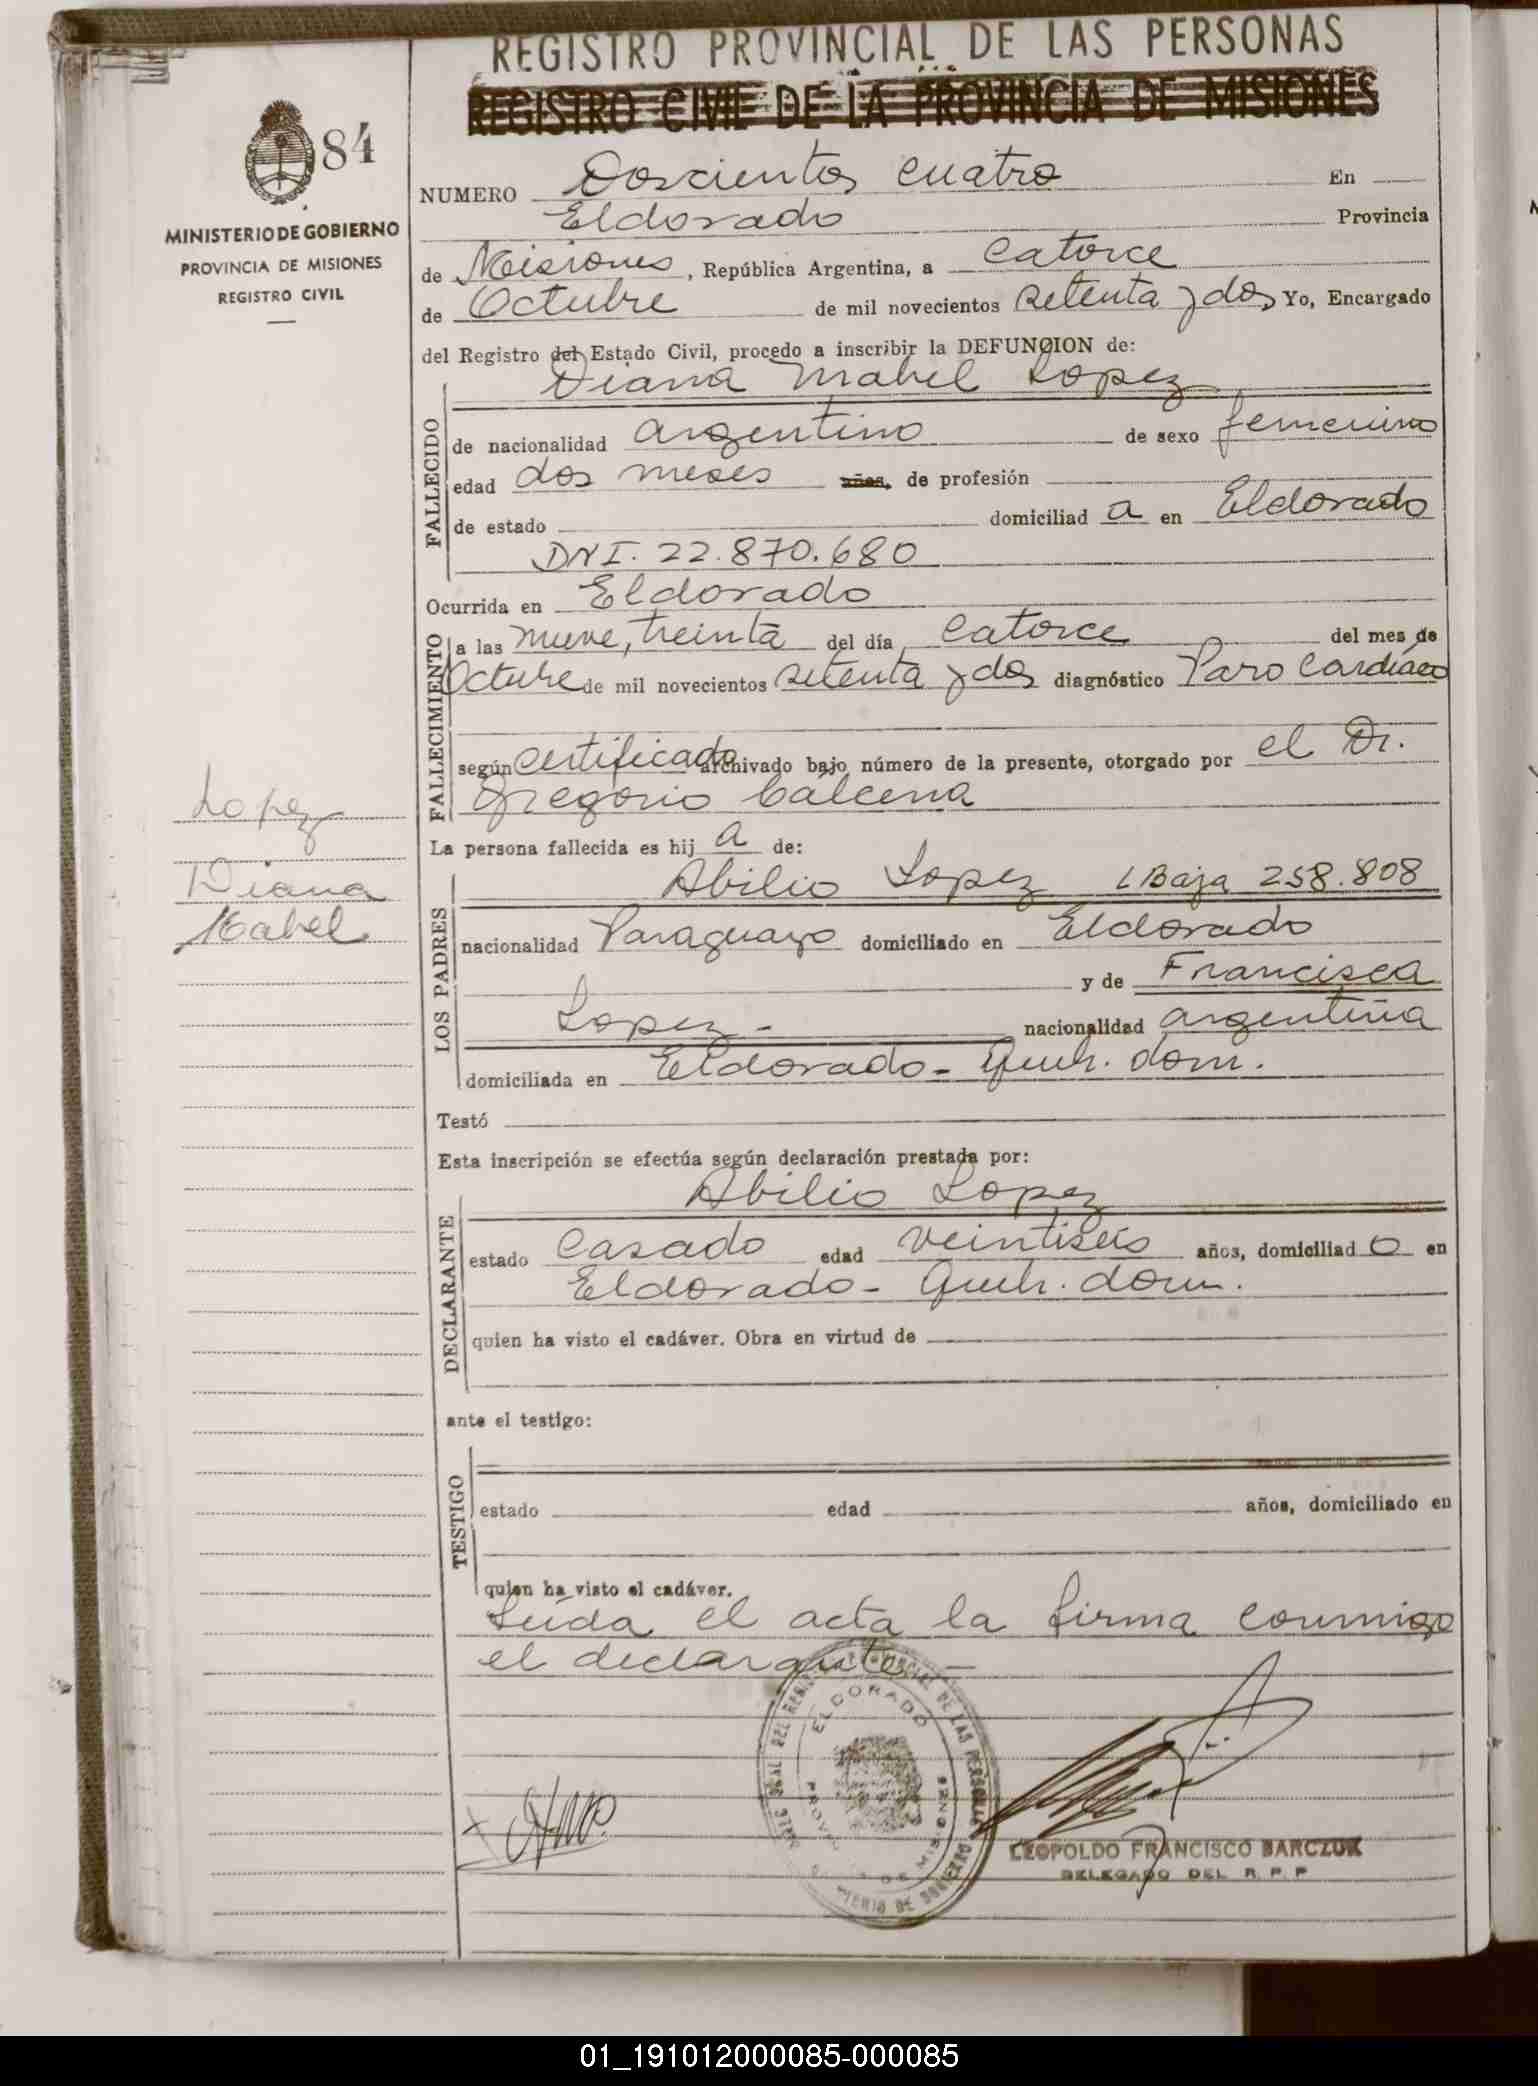 REGISTRO PROVINCIAL DE LAS PERSONAS
REGISTRO CIVIL DE LA PROVINCIA DE MISIONES
84
MINISTERIO DE GOBIERNO
PROVINCIA DE MISIONES
REGISTRO CIVIL
NUMERO Doscientos cuatro En
Eldorado Provincia
de Misiones, República Argentina, a Catorce
de Octubre de mil novecientos setenta y dos Yo, Encargado
del Registro del Estado Civil, procedo a inscribir la DEFUNCION de:
Diana Mabel Lopez
FALLECIDO
de nacionalidad argentino de sexo femenino
edad dos meses años, de profesión
de estado domiciliad a en Eldorado
DNI. 22.870.680
Ocurrida en Eldorado
FALLECIMIENTO
a las nueve, treinta del día catorce del mes de
Octubre de mil novecientos setenta y dos diagnóstico Paro Cardíaco
según certificado archivado bajo número de la presente, otorgado por el Dr.
Gregorio Cálcena
Lopez
Diana
Mabel
La persona fallecida es hij a de:
LOS PADRES
Abilio Lopez (Baja 258.808
nacionalidad Paraguayo domiciliado en Eldorado
y de Francisca
Lopez - nacionalidad argentina
domiciliada en Eldorado - dom.
Testó
Esta inscripción se efectúa según declaración prestada por:
DECLARANTE
Abilio Lopez
estado Casado edad veintiseis años, domiciliad o en
Eldorado - dom.
quien ha visto el cadáver. Obra en virtud de
ante el testigo:
TESTIGO
estado edad años, domiciliado en
quien ha visto el cadáver.
Leída el acta la firma conmigo
el declarante -
ELDORADO
LEOPOLDO FRANCISCO BARCZUK
DELEGADO DEL R. P. P
01_191012000085-000085